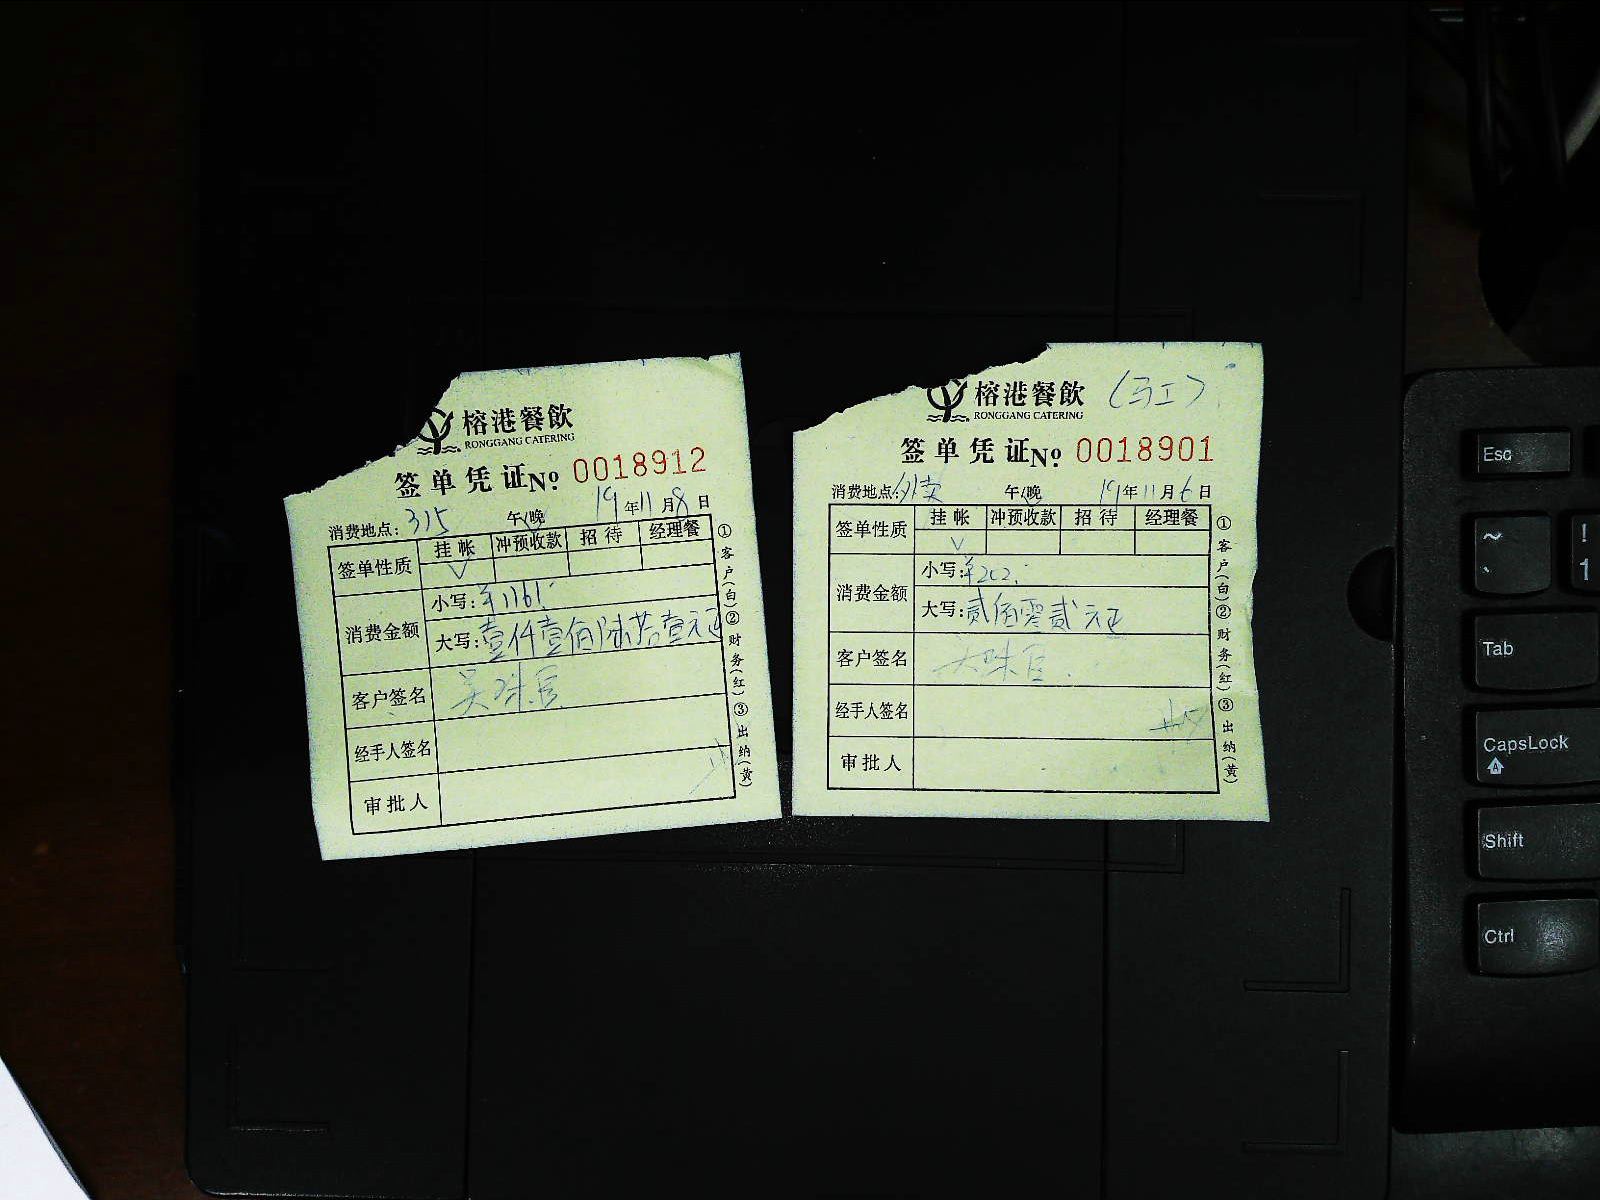 榕港餐飲
RONGGANG CATERING
签单凭证№ 0018912
消费地点: 315 午/晚 19年11月8日
签单性质 挂帐 冲预收款 招待 经理餐
√
消费金额 小写:￥1161.
大写:壹仟壹佰陆拾壹元正
客户签名 吴珠官
经手人签名
审批人
①客户(白)②财务(红)③出纳(黄)
榕港餐飲
RONGGANG CATERING
签单凭证№ 0018901
消费地点: 外卖 午/晚 19年11月6日
签单性质 挂帐 冲预收款 招待 经理餐
√
消费金额 小写:￥202.
大写:贰佰零贰元正
客户签名
经手人签名
审批人
①客户(白)②财务(红)③出纳(黄)
Esc
~
!
1
Tab
CapsLock
Shift
Ctrl